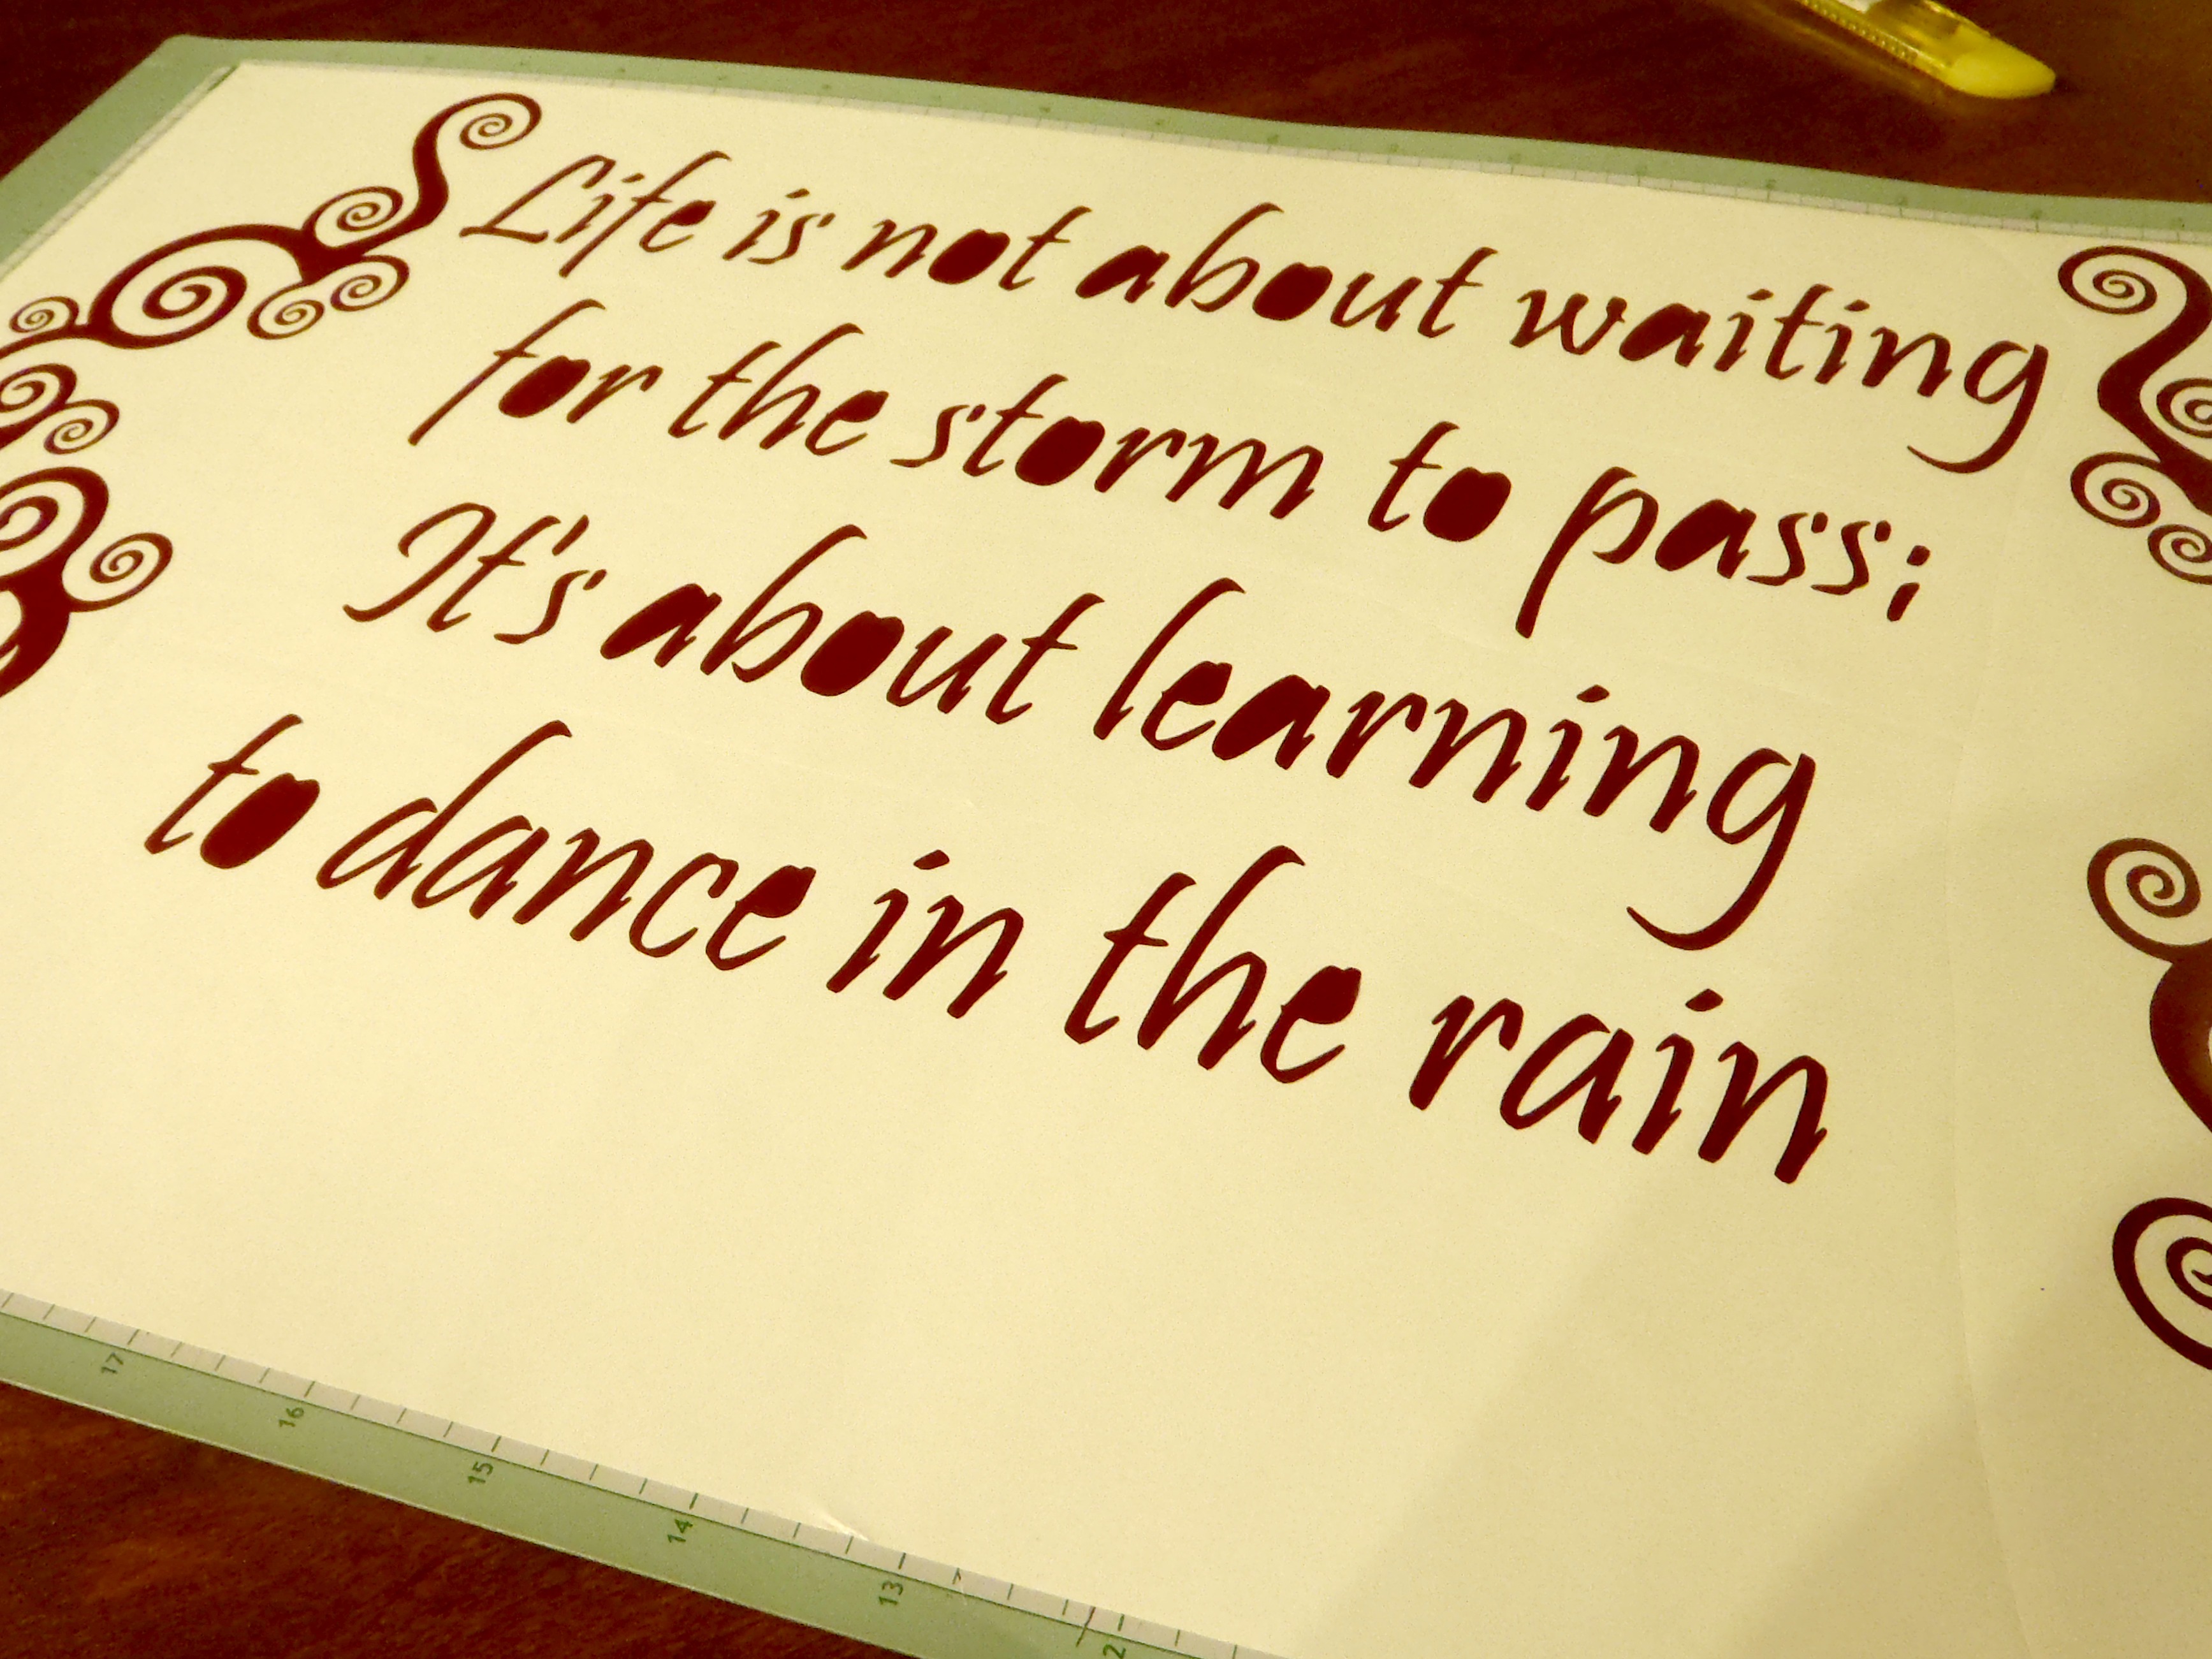 Life is not about waiting
for the storm to pass;
It's about learning
to dance in the rain
17
16
15
14
13